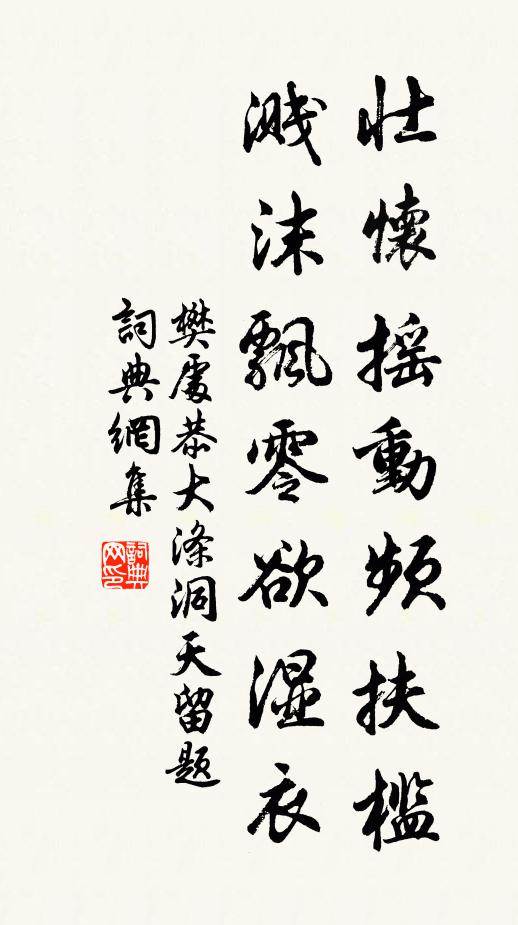 壮懷摇動頻扶檻
濺沫飄零欲湿衣
樊處恭大滌洞天留题
詞典網集
詞典网印